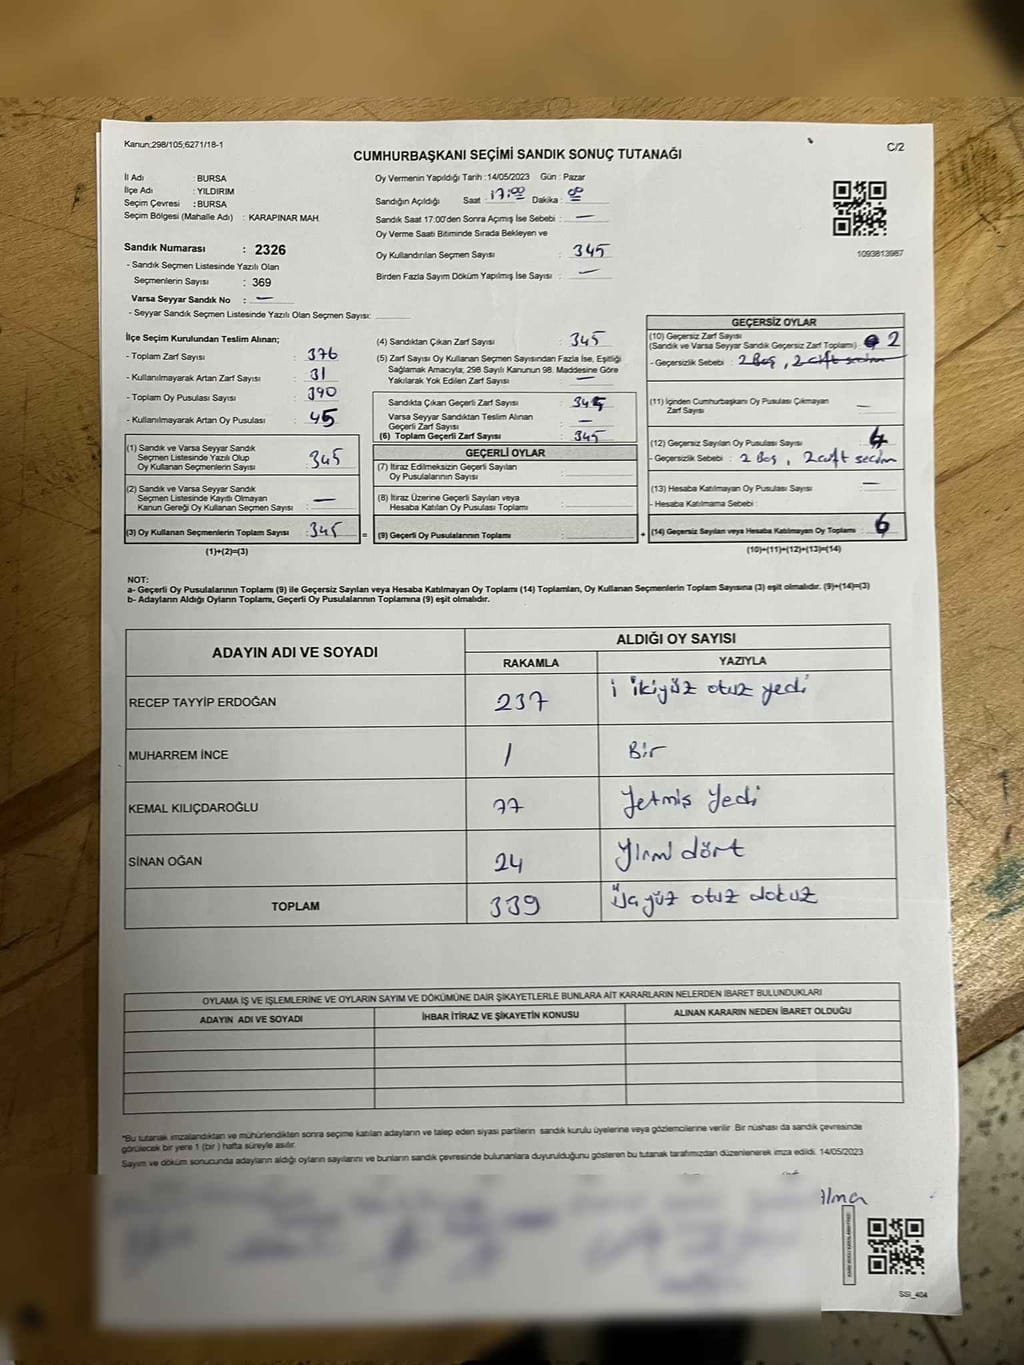 Kanun;298/105;6271/18-1
C/2
CUMHURBAŞKANI SEÇİMİ SANDIK SONUÇ TUTANAĞI
İl Adı : BURSA
İlçe Adı : YILDIRIM
Seçim Çevresi : BURSA
Seçim Bölgesi (Mahalle Adı) : KARAPINAR MAH.
Sandık Numarası : 2326
- Sandık Seçmen Listesinde Yazılı Olan
Seçmenlerin Sayısı : 369
Varsa Seyyar Sandık No : —
- Seyyar Sandık Seçmen Listesinde Yazılı Olan Seçmen Sayısı:
Oy Vermenin Yapıldığı Tarih :14/05/2023 Gün : Pazar
Sandığın Açıldığı Saat : 17:00 Dakika : 00
Sandık Saat 17.00'den Sonra Açımış İse Sebebi : —
Oy Verme Saati Bitiminde Sırada Bekleyen ve
Oy Kullandırılan Seçmen Sayısı : 345
Birden Fazla Sayım Döküm Yapılmış İse Sayısı : —
1093813987
İlçe Seçim Kurulundan Teslim Alınan;
- Toplam Zarf Sayısı : 376
- Kullanılmayarak Artan Zarf Sayısı : 31
- Toplam Oy Pusulası Sayısı : 390
- Kullanılmayarak Artan Oy Pusulası : 45
(1) Sandık ve Varsa Seyyar Sandık
Seçmen Listesinde Yazılı Olup
Oy Kullanan Seçmenlerin Sayısı : 345
(2) Sandık ve Varsa Seyyar Sandık
Seçmen Listesinde Kayıtlı Olmayan
Kanun Gereği Oy Kullanan Seçmen Sayısı : —
(3) Oy Kullanan Seçmenlerin Toplam Sayısı : 345
(1)+(2)=(3)
(4) Sandıktan Çıkan Zarf Sayısı : 345
(5) Zarf Sayısı Oy Kullanan Seçmen Sayısından Fazla İse, Eşitliği
Sağlamak Amacıyla; 298 Sayılı Kanunun 98. Maddesine Göre
Yakılarak Yok Edilen Zarf Sayısı : —
Sandıkta Çıkan Geçerli Zarf Sayısı : 345
Varsa Seyyar Sandıktan Teslim Alınan
Geçerli Zarf Sayısı : —
(6) Toplam Geçerli Zarf Sayısı : 345
GEÇERLİ OYLAR
(7) İtiraz Edilmeksizin Geçerli Sayılan
Oy Pusulalarının Sayısı :
(8) İtiraz Üzerine Geçerli Sayılan veya
Hesaba Katılan Oy Pusulası Toplamı :
= (9) Geçerli Oy Pusulalarının Toplamı :
GEÇERSİZ OYLAR
(10) Geçersiz Zarf Sayısı
(Sandık ve Varsa Seyyar Sandık Geçersiz Zarf Toplamı) : 2
- Geçersizlik Sebebi : 2 Boş, 2 çift seçim
(11) İçinden Cumhurbaşkanı Oy Pusulası Çıkmayan
Zarf Sayısı : —
(12) Geçersiz Sayılan Oy Pusulası Sayısı : 4
- Geçersizlik Sebebi : 2 Boş, 2 çift seçim
(13) Hesaba Katılmayan Oy Pusulası Sayısı : —
- Hesaba Katılmama Sebebi
+ (14) Geçersiz Sayılan veya Hesaba Katılmayan Oy Toplamı : 6
(10)+(11)+(12)+(13)=(14)
NOT:
a- Geçerli Oy Pusulalarının Toplamı (9) ile Geçersiz Sayılan veya Hesaba Katılmayan Oy Toplamı (14) Toplamları, Oy Kullanan Seçmenlerin Toplam Sayısına (3) eşit olmalıdır. (9)+(14)=(3)
b- Adayların Aldığı Oyların Toplamı, Geçerli Oy Pusulalarının Toplamına (9) eşit olmalıdır.
ADAYIN ADI VE SOYADI ALDIĞI OY SAYISI
RAKAMLA YAZIYLA
RECEP TAYYİP ERDOĞAN 237 i ikiyüz otuz yedi
MUHARREM İNCE 1 Bir
KEMAL KILIÇDAROĞLU 77 Yetmiş Yedi
SİNAN OĞAN 24 Yirmi dört
TOPLAM 339 Üçyüz otuz dokuz
OYLAMA İŞ VE İŞLEMLERİNE VE OYLARIN SAYIM VE DÖKÜMÜNE DAİR ŞİKAYETLERLE BUNLARA AİT KARARLARIN NELERDEN İBARET BULUNDUKLARI
ADAYIN ADI VE SOYADI İHBAR İTİRAZ VE ŞİKAYETİN KONUSU ALINAN KARARIN NEDEN İBARET OLDUĞU
*Bu tutanak imzalandıktan ve mühürlendikten sonra seçime katılan adayların ve talep eden siyasi partilerin sandık kurulu üyelerine veya gözlemcilerine verilir. Bir nüshası da sandık çevresinde
görülecek bir yere 1 (bir) hafta süreyle asılır.
Sayım ve döküm sonucunda adayların aldığı oyların sayılarını ve bunların sandık çevresinde bulunanlara duyurulduğunu gösteren bu tutanak tarafımızdan düzenlenerek imza edildi. 14/05/2023
SSİ_404